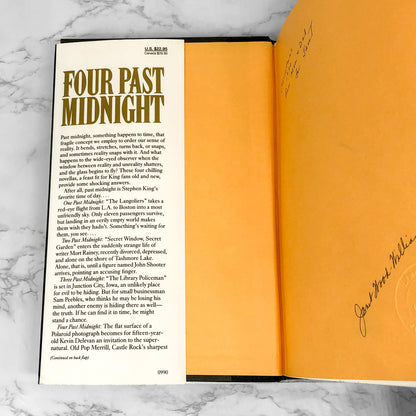 U.S. $22.95
FOUR PAST
MIDNIGHT
Past midnight, something happens to time, that
fragile concept we employ to order our sense of
reality. It bends, stretches, turns back, or snaps,
and sometimes reality snaps with it. And what
happens to the wide-eyed observer when the
window between reality and unreality shatters,
and the glass begins to fly? These four chilling
novellas, a feast for King fans old and new,
provide some shocking answers.
After all, past midnight is Stephen King's
favorite time of day. . . .
One Past Midnight: "The Langoliers" takes a
red-eye flight from L.A. to Boston into a most
unfriendly sky. Only eleven passengers survive,
but landing in an eerily empty world makes
them wish they hadn't. Something's waiting for
them, you see. . . .
Two Past Midnight: "Secret Window, Secret
Garden" enters the suddenly strange life of
writer Mort Rainey, recently divorced, depressed,
and alone on the shore of Tashmore Lake.
Alone, that is, until a figure named John Shooter
arrives, pointing an accusing finger.
Three Past Midnight: "The Library Policeman"
is set in Junction City, Iowa, an unlikely place
for evil to be hiding. But for small businessman
Sam Peebles, who thinks he may be losing his
mind, another enemy is hiding there as well—
the truth. If he can find it in time, he might
stand a chance.
Four Past Midnight: The flat surface of a
Polaroid photograph becomes for fifteen-year-
old Kevin Delevan an invitation to the super-
natural. Old Pop Merrill, Castle Rock's sharpest
(Continued on back flap)
0990